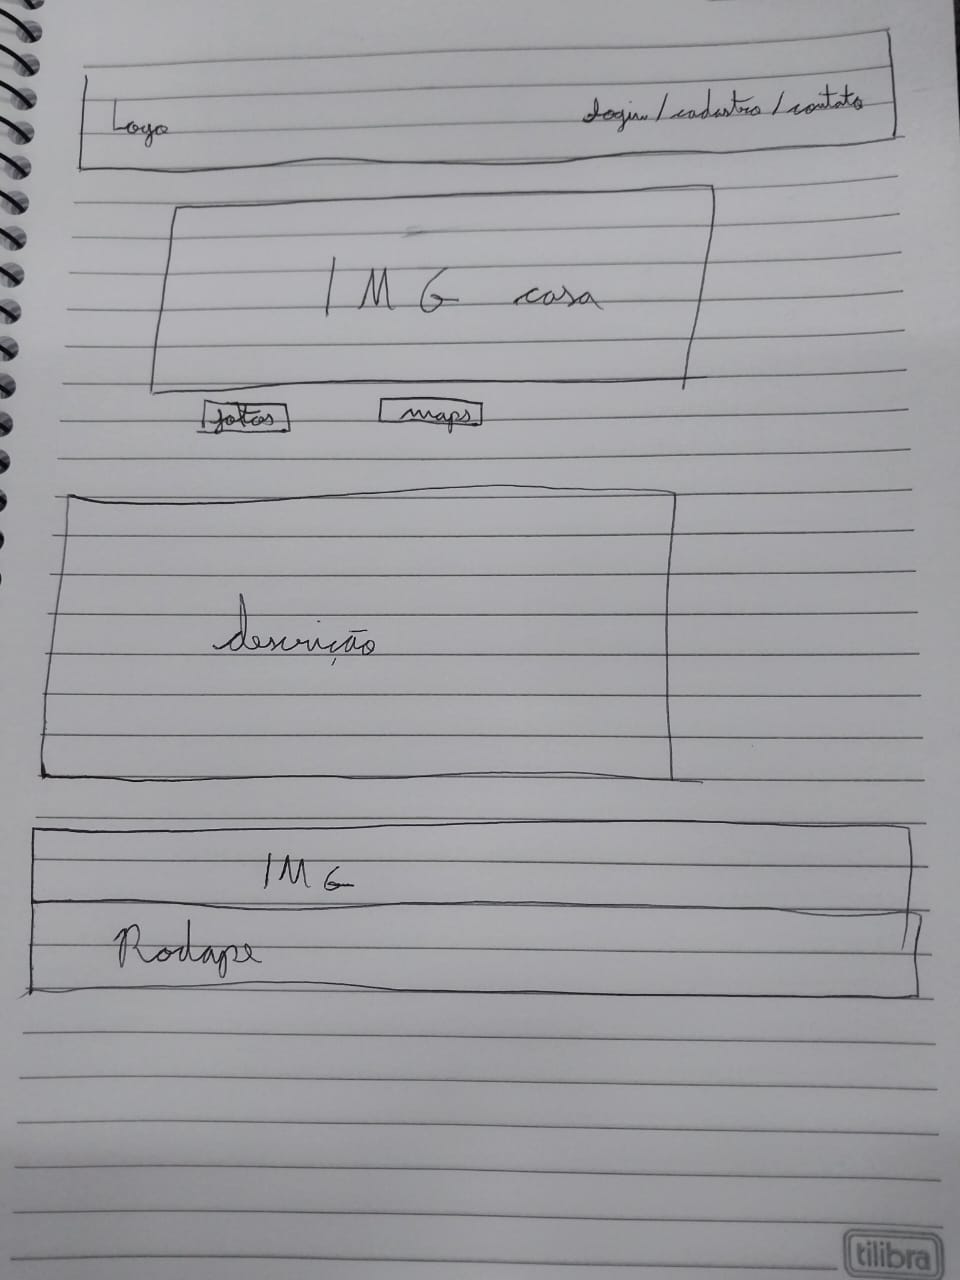 Logo
login/cadastro/contato
IMG casa
fotos
maps
descrição
IMG
Rodape
tilibra